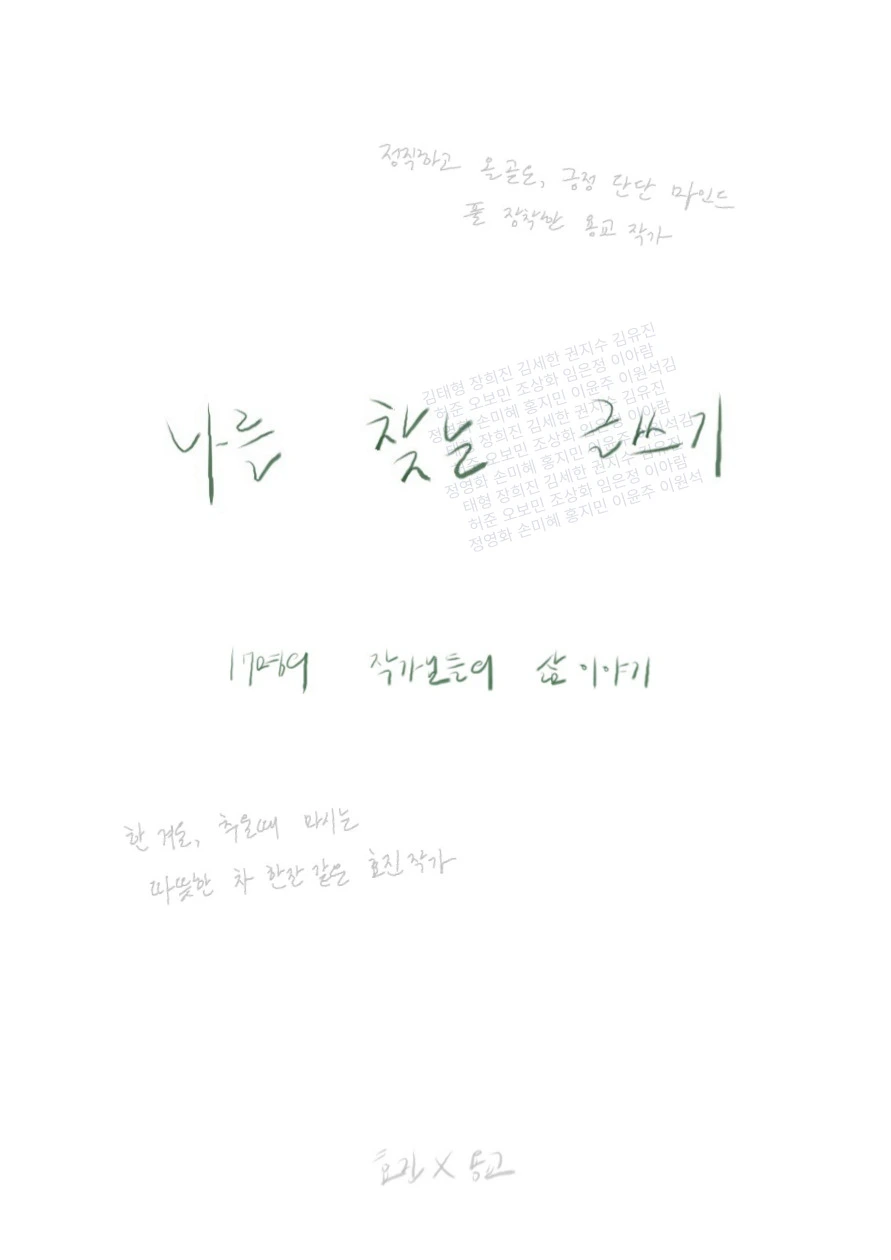 정직하고 올곧은, 긍정 단단 마인드
풀 장착한 용교 작가
김태형 장희진 김세한 권지수 김유진
허준 오보민 조상화 임은정 이아람
정영화 손미혜 홍지민 이윤주 이원석김
태형 장희진 김세한 권지수 김유진
허준 오보민 조상화 임은정 이아람
정영화 손미혜 홍지민 이윤주 이원석김
태형 장희진 김세한 권지수 김유진
허준 오보민 조상화 임은정 이아람
정영화 손미혜 홍지민 이윤주 이원석
나를 찾는 글쓰기
17명의 작가님들의 삶 이야기
한 겨울, 추울때 마시는
따뜻한 차 한잔 같은 효진 작가
효진 X 용교